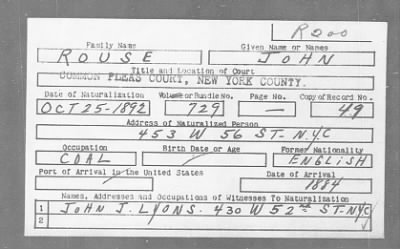 R200
Family Name Given Name or Names
ROUSE JOHN
Title and Location of Court
COMMON PLEAS COURT, NEW YORK COUNTY.
Date of Naturalization Volume or Bundle No. Page No. Copy of Record No.
OCT 25-1892 729 — 49
Address of Naturalized Person
453 W 56 ST- N.Y.C
Occupation Birth Date or Age Former Nationality
COAL ENGLISH
Port of Arrival in the United States Date of Arrival
1884
Names, Addresses and Occupations of Witnesses To Naturalization
1 JOHN J. LYONS. 430 W 52ND ST-NYC
2